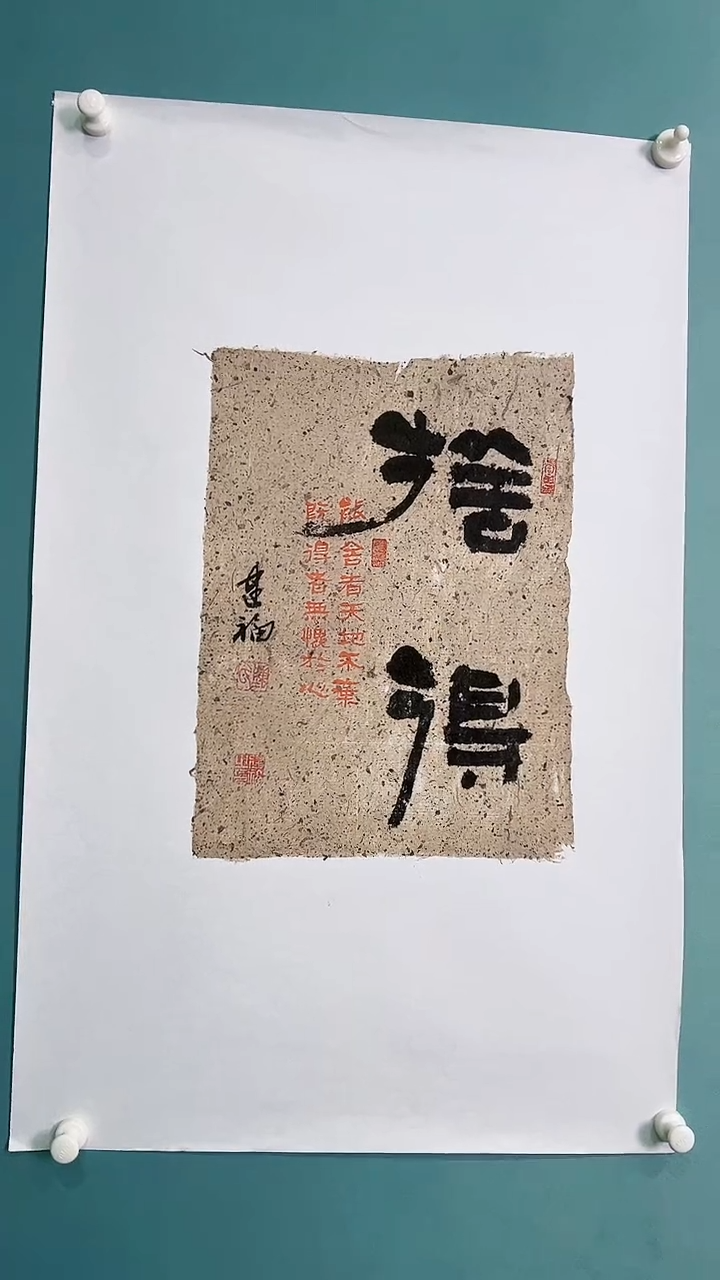 捨
得
能舍者天地不棄
既得者無愧於心
建福